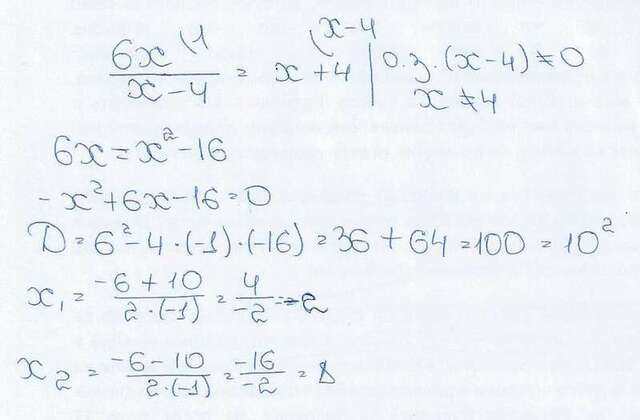 6x \1 / x-4 = x+4 \x-4 | О.З. (x-4)≠0
x≠4
6x=x²-16
-x²+6x-16=0
D=6²-4·(-1)·(-16)=36+64=100=10²
x₁=-6+10/2·(-1)=4/-2=-2
x₂=-6-10/2·(-1)=-16/-2=8